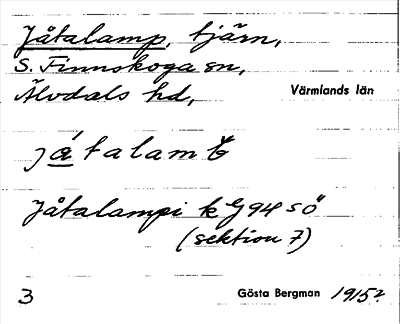 Jåtalamp, tjärn,
S. Finnskoga sn,
Älvdals hd, Värmlands län
Jåtalampi kG 94 SÖ
(sektion 7)
3 Gösta Bergman 1915?